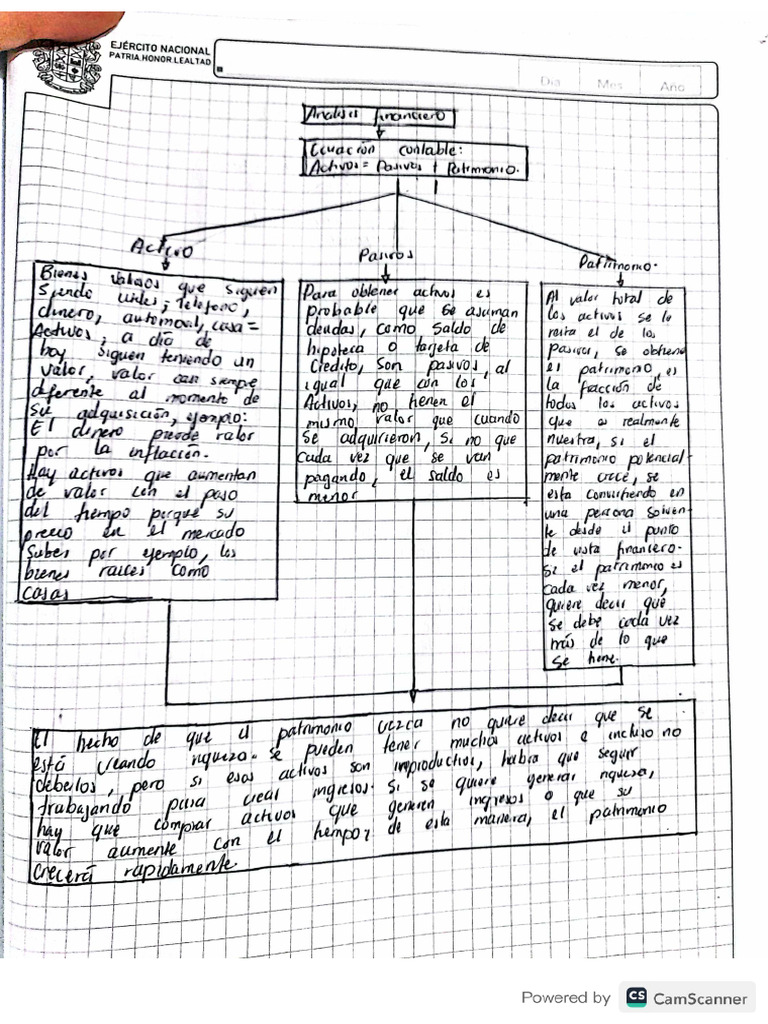 EJÉRCITO NACIONAL
PATRIA.HONOR.LEALTAD
Dia Mes Año
Analisis financiero
Ecuación contable:
Activos = Pasivos + Patrimonio.
Activo
Bienes valiosos que siguen
siendo utiles; Telefono,
dinero, automovil, casa =
Activos, a dia de
hoy siguen teniendo un
valor, valor casi siempre
diferente al momento de
su adquisición, ejemplo:
El dinero pierde valor
por la inflación.
Hay activos que aumentan
de valor con el paso
del tiempo porque su
precio en el mercado
suben por ejemplo, los
bienes raices como
casas
Pasivos
Para obtener activos es
probable que se asuman
deudas, como saldo de
hipoteca o tarjeta de
credito, son pasivos, al
igual que con los
Activos, no tienen el
mismo valor que cuando
se adquirieron, si no que
cada vez que se van
pagando, el saldo es
menor
Patrimonio.
Al valor total de
los activos se le
resta el de los
pasivos, se obtiene
el patrimonio, es
la fracción de
todos los activos
que es realmente
nuestra, si el
patrimonio potencial-
mente crece, se
esta convirtiendo en
una persona solven-
te desde el punto
de vista financiero.
Si el patrimonio es
cada vez menor,
quiere decir que
se debe cada vez
más de lo que
se tiene.
El hecho de que el patrimonio crezca no quiere decir que se
está creando riqueza. se pueden tener muchos activos e incluso no
deberlos, pero si esos activos son improductivos, habra que seguir
trabajando para crear ingresos. Si se quiere generar riqueza,
hay que comprar activos que generen ingresos o que su
valor aumente con el tiempo; de esta manera, el patrimonio
crecerá rapidamente.
Powered by CS CamScanner